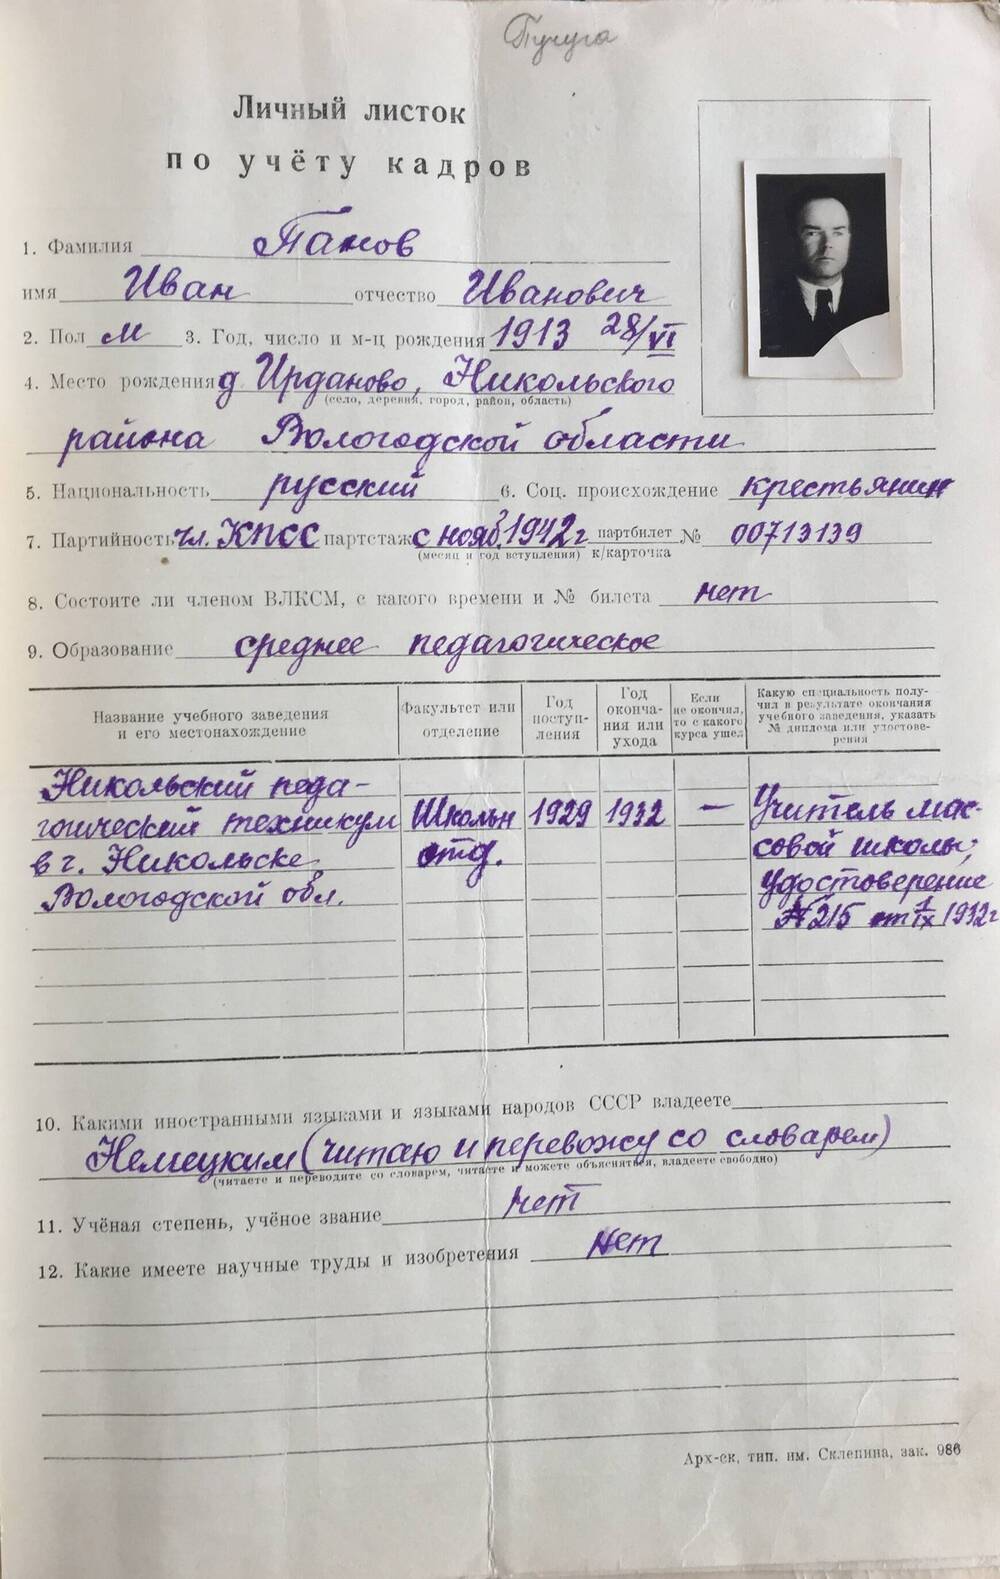 Личный листок
по учёту кадров
1. Фамилия
имя Иван отчество Иванович
2. Пол м 3. Год, число и м-ц рождения 1913 28/VI
4. Место рождения д. Ирданово, Никольского
(село, деревня, город, район, область)
района Вологодской области
5. Национальность русский 6. Соц. происхождение крестьянин
7. Партийность чл. КПСС партстаж с нояб. 1942 г партбилет № 00713139
(месяц и год вступления) к/карточка
8. Состоите ли членом ВЛКСМ, с какого времени и № билета нет
9. Образование среднее педагогическое
Название учебного заведения и его местонахождение
Факультет или отделение
Год поступления
Год окончания или ухода
Если не окончил, то с какого курса ушел
Какую специальность получил в результате окончания учебного заведения, указать № диплома или удостоверения
Никольский педа-
гогический техникум Школьн 1929 1932 — Учитель мас-
в г. Никольске отд. совой школы,
Вологодской обл. Удостоверение
№ 215 от 1/IX 1932 г
10. Какими иностранными языками и языками народов СССР владеете
Немецким (читаю и перевожу со словарем)
(читаете и переводите со словарем, читаете и можете объясняться, владеете свободно)
11. Учёная степень, учёное звание нет
12. Какие имеете научные труды и изобретения нет
Арх-ск, тип. им. Склепина, зак. 986